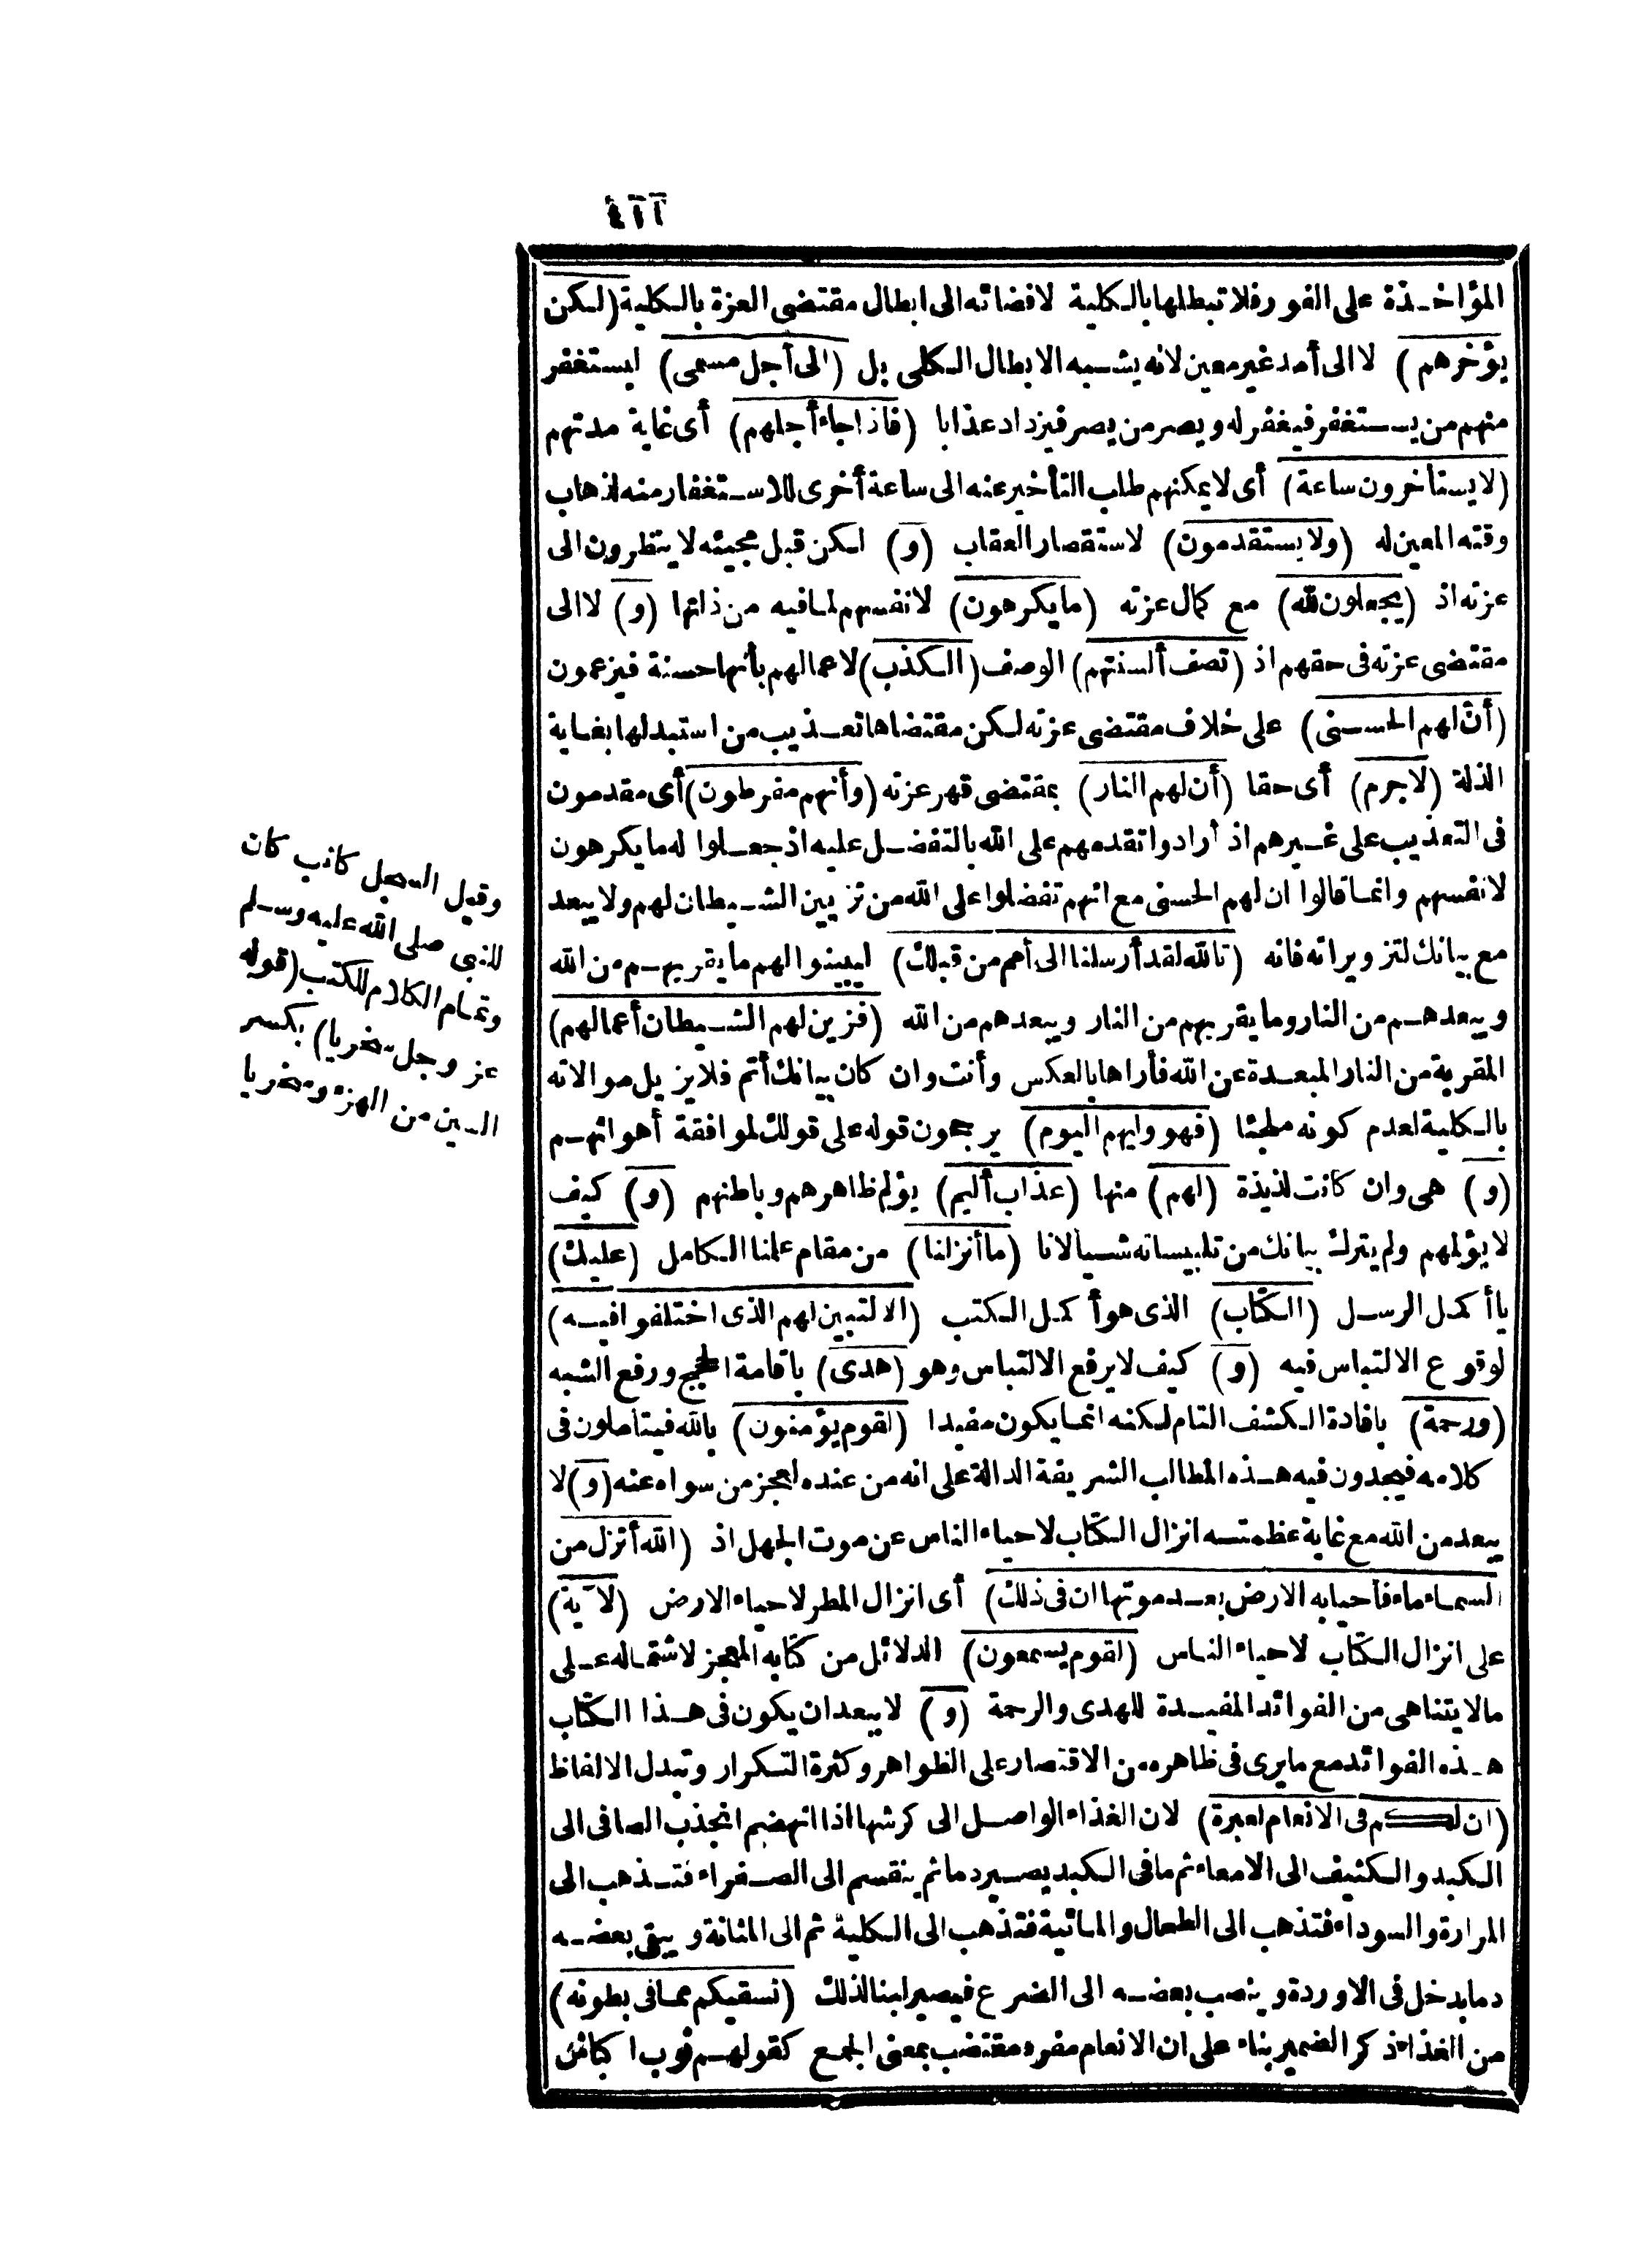 المؤاخذة على الفور فلا تبطلها بالكلية لافضائه الى ابطال مقتضى العزة بالكلية (لكن
يؤخرهم) لا الى أمد غير معين لانه يشبه الابطال الكلى بل (الى أجل مسمى) ليستغفر
منهم من يستغفر فيغفر له ويصر من يصر فيزداد عذابا (فاذا جاء أجلهم) أى غاية مدتهم
(لا يستأخرون ساعة) أى لا يمكنهم طلب التأخير عنه الى ساعة أخرى للاستغفار منه لذهاب
وقته المعين له (ولا يستقدمون) لاستقصار العقاب (و) لكن قبل مجيئه لا ينظرون الى
عزته اذ (يجعلون لله) مع كمال عزته (ما يكرهون) لانفسهم لما فيه من ذلتها (و) لا الى
مقتضى عزته فى حقهم اذ (تصف ألسنتهم) الوصف (الكذب) لاعمالهم بأنها حسنة فيزعمون
(أن لهم الحسنى) على خلاف مقتضى عزته لكن مقتضاها تعذيب من استبدلها بغاية
الذلة (لا جرم) أى حقا (أن لهم النار) بمقتضى قهر عزته (وأنهم مفرطون) أى مقدمون
فى التعذيب على غيرهم اذ أرادوا تقدمهم على الله بالتفضل عليه اذ جعلوا له ما يكرهون
لانفسهم وانما قالوا ان لهم الحسنى مع انهم تفضلوا على الله من تزيين الشيطان لهم ولا يبعد
مع بيانك لتزويراته فانه (تالله لقد أرسلنا الى أمم من قبلك) ليبينوا لهم ما يقربهم من الله
ويبعدهم من النار وما يقربهم من النار ويبعدهم من الله (فزين لهم الشيطان أعمالهم)
المقربة من النار المبعدة عن الله فأراها بالعكس وأنت وان كان بيانك أتم فلا يزيل موالاته
بالكلية لعدم كونه ملجئا (فهو وليهم اليوم) يرجحون قوله على قولك لموافقة أهوائهم
(و) هى وان كانت لذيذة (لهم) منها (عذاب أليم) يؤلم ظاهرهم وباطنهم (و) كيف
لا يؤلمهم ولم يترك بيانك من تلبيساته شيأ لانا (ما أنزلنا) من مقام علمنا الكامل (عليك)
يا أكمل الرسل (الكتاب) الذى هو أكمل الكتب (الا لتبين لهم الذى اختلفوا فيه)
لوقوع الالتباس فيه (و) كيف لا يرفع الالتباس وهو (هدى) باقامة الحجج ورفع الشبه
(ورحمة) بافادة الكشف التام لكنه انما يكون مفيدا (لقوم يؤمنون) بالله فيتأملون فى
كلامه فيجدون فيه هذه المطالب الشريفة الدالة على انه من عنده لعجز من سواه عنه (و) لا
يبعد من الله مع غاية عظمته انزال الكتاب لاحياء الناس عن موت الجهل اذ (الله أنزل من
السماء ماء فأحيا به الارض بعد موتها ان فى ذلك) أى انزال المطر لاحياء الارض (لآية)
على انزال الكتاب لاحياء الناس (لقوم يسمعون) الدلائل من كتابه المعجز لاشتماله على
ما لا يتناهى من الفوائد المفيدة للهدى والرحمة (و) لا يبعد ان يكون فى هذا الكتاب
هذه الفوائد مع ما يرى فى ظاهره من الاقتصار على الظواهر وكثرة التكرار وتبدل الالفاظ
(ان لكم فى الانعام لعبرة) لان الغذاء الواصل الى كرشها اذا انهضم انجذب الصافى الى
الكبد والكثيف الى الامعاء ثم ما فى الكبد يصير دما ثم ينقسم الى الصفراء فتذهب الى
المرارة والسوداء فتذهب الى الطحال والمائية فتذهب الى الكلية ثم الى المثانة ويبقى بعضه
دما يدخل فى الاوردة وينصب بعضه الى الضرع فيصير لبنا لذلك (نسقيكم مما فى بطونه)
من الغذاء ذكر الضمير بناء على ان الانعام مفرد مقتضب بمعنى الجمع كقولهم ثوب اكباش
وقيل السجل كاتب كان
للنبى صلى الله عليه وسلم
وتمام الكلام للكتب (قوله
عز وجل سخريا) بكسر
السين من الهزء وسخريا